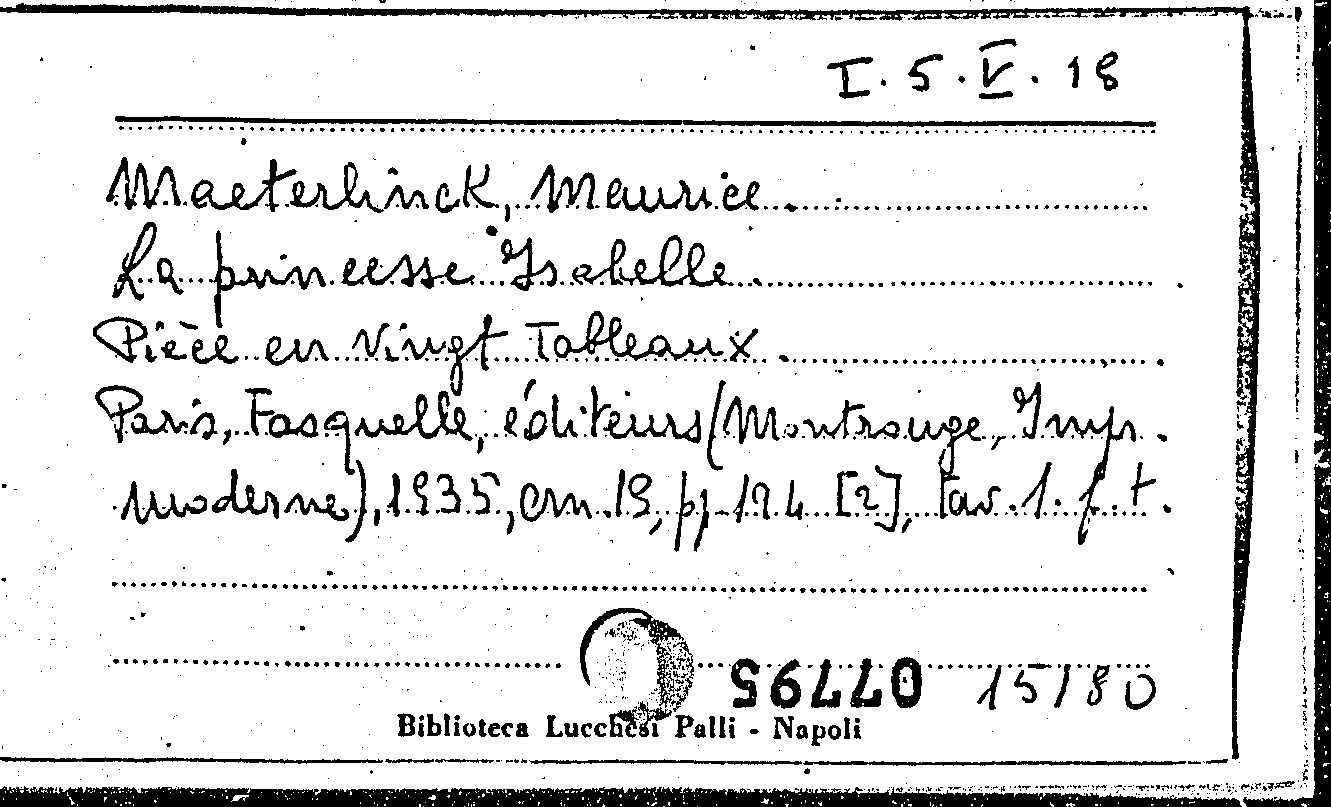 I. 5. V. 18
Maeterlinck, Maurice.
La princesse Isabelle.
Pièce en vingt Tableaux.
Paris, Fasquelle, éditeurs (Montrouge, Imp.
moderne), 1935, cm. 19, pp. 194 [2], tav. 1. f. t.
07795 15/80
Biblioteca Lucchesi Palli - Napoli